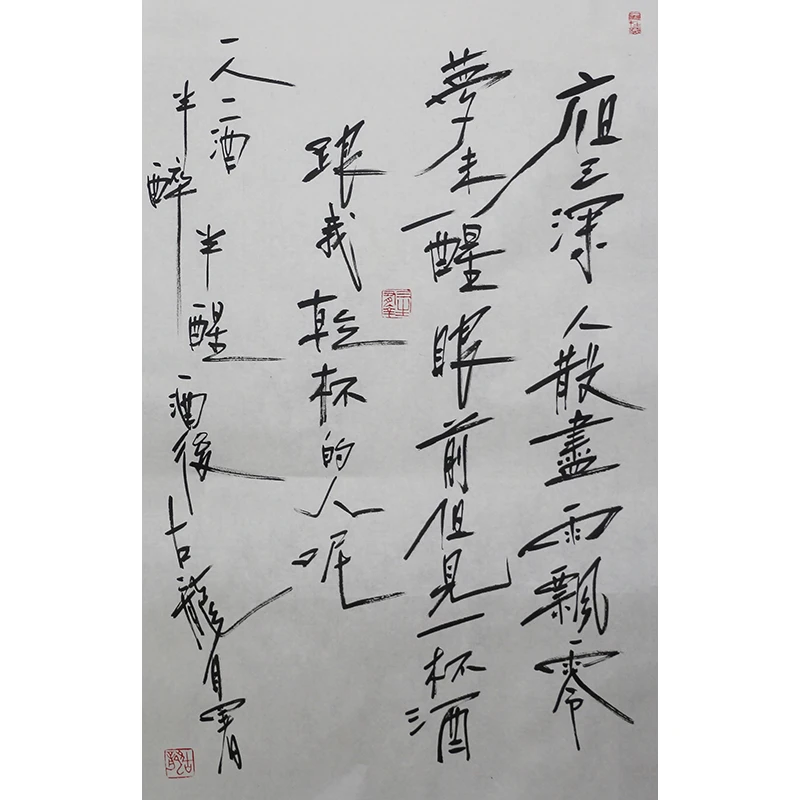 三深人散盡雨飄零
夢未醒眼前但見一杯酒
跟我乾杯的人呢
一人二酒
半醉半醒酒後古龍自署